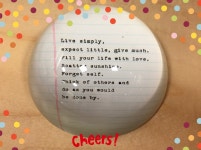 Live simply,
expect little, give much.
Fill your life with love.
Scatter sunshine.
Forget self.
Think of others and
do as you would
be done by.
Cheers!